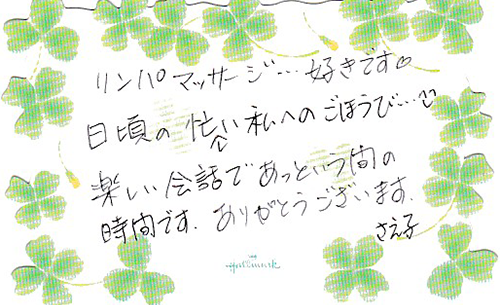 リンパマッサージ…好きです♡
日頃の忙しい私へのごほうび…
楽しい会話であっという間の
時間です. ありがとうございます.
さえ子